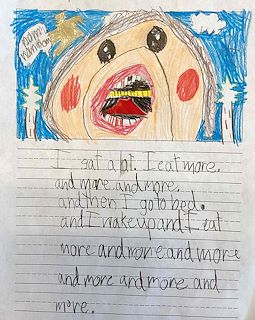 nom
nomnom
I eat a lot. I eat more.
and more and more.
and then I go to bed.
and I wake up and I eat
more and more and more
and more and more and
more.